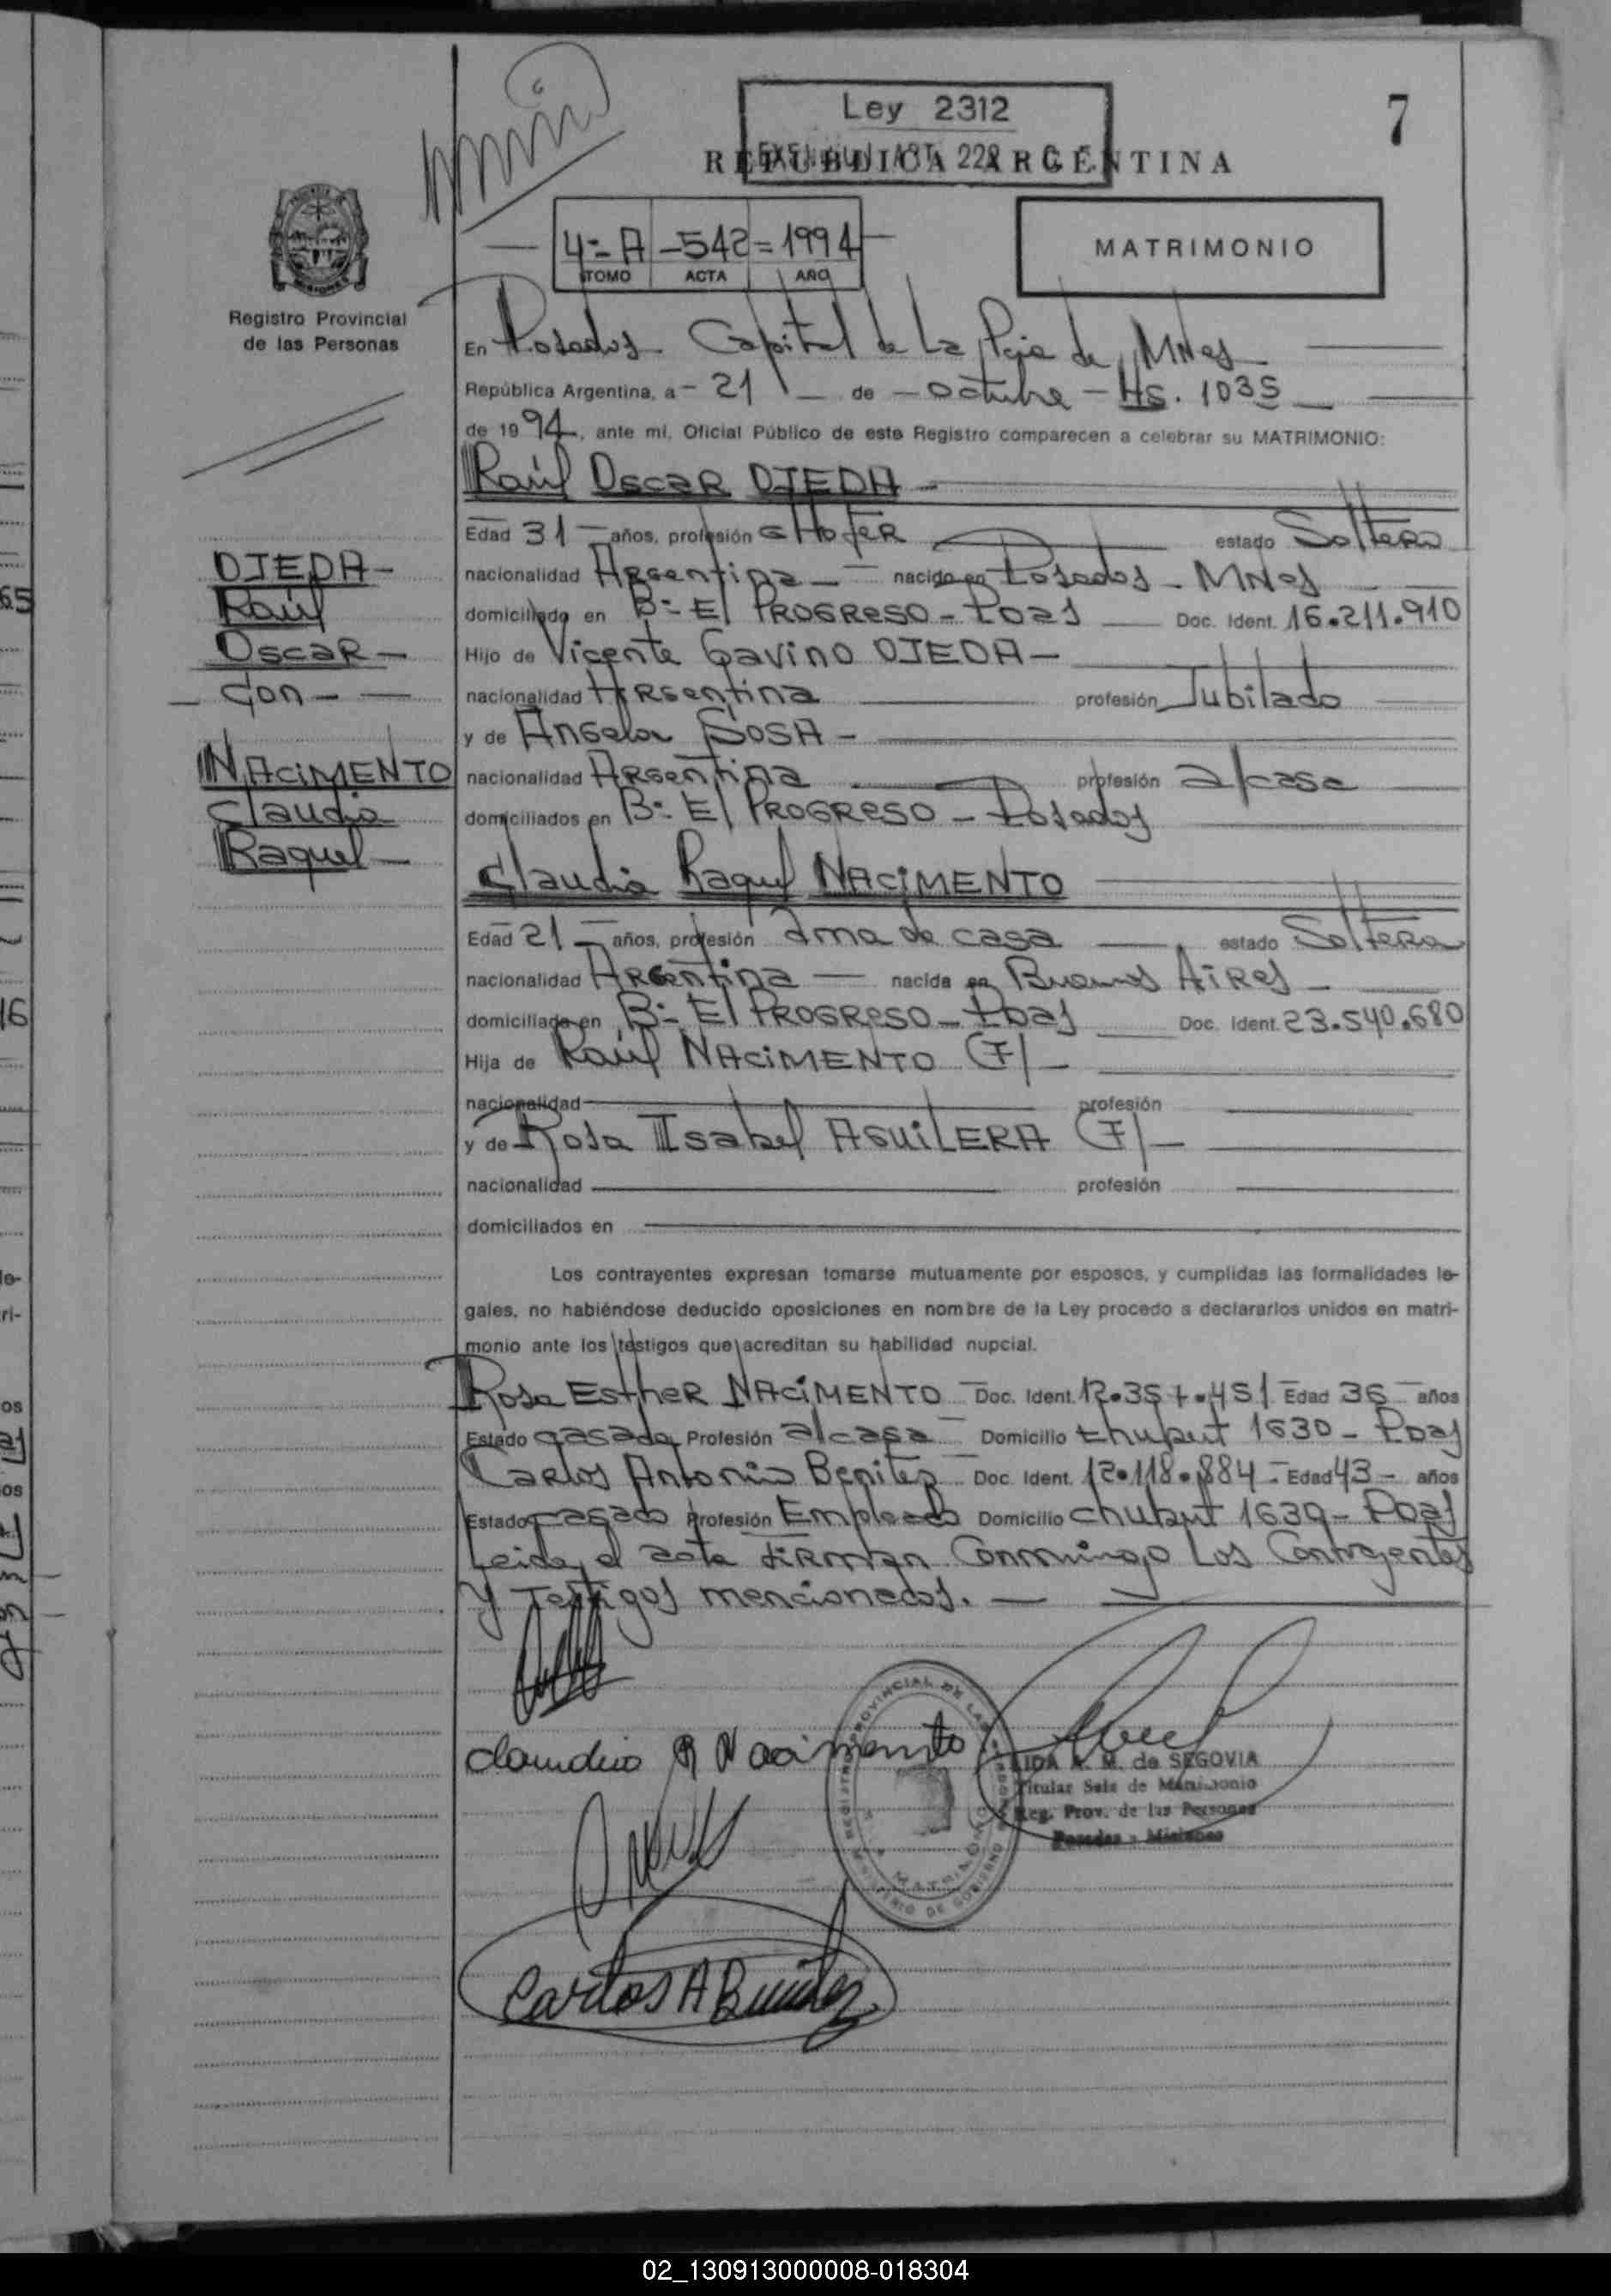 Ley 2312
7
REPUBLICA ARGENTINA
4= A - 542 = 1994
TOMO ACTA AÑO
MATRIMONIO
Registro Provincial
de las Personas
En Posadas Capital de La Pcia de MNes
República Argentina, a - 21 - de - octubre - Hs. 1035
de 1994, ante mí, Oficial Público de este Registro comparecen a celebrar su MATRIMONIO:
Raúl Oscar OJEDA -
Edad 31 - años, profesión CHofeR estado Soltero
OJEDA -
nacionalidad Argentina - nacido en Posadas - MNes
Raúl
domiciliado en Bº El PROGReSO - Pdas Doc. Ident. 16.211.910
Oscar -
Hijo de Vicente Gavino OJEDA -
- Con -
nacionalidad Argentina profesión Jubilado
y de Angela SOSA -
NACIMENTO
nacionalidad Argentina profesión a/casa
Claudia
domiciliados en Bº El PROGReSO - Posadas
Raquel -
Claudia Raquel NACIMENTO
Edad 21 - años, profesión ama de casa estado Soltera
nacionalidad Argentina - nacida en Buenos Aires -
domiciliada en Bº El PROGReSO - Pdas Doc. Ident. 23.540.680
Hija de Raúl NACIMENTO (F) -
nacionalidad profesión
y de Rosa Isabel AGUILERA (F) -
nacionalidad profesión
domiciliados en
Los contrayentes expresan tomarse mutuamente por esposos, y cumplidas las formalidades le-
gales, no habiéndose deducido oposiciones en nombre de la Ley procedo a declararlos unidos en matri-
monio ante los testigos que acreditan su habilidad nupcial.
Rosa Esther NACIMENTO - Doc. Ident. 12.357.451 - Edad 36 - años
Estado casada Profesión a/casa - Domicilio Chubut 1630 - Pdas
Carlos Antonio Benitez - Doc. Ident. 12.118.884 - Edad 43 - años
Estado casado Profesión Empleado Domicilio Chubut 1630 - Pdas
Leida el acta firman Conmingo Los Contrayentes
y Testigos mencionados. -
claudia R Nacimento
LIDA A. M. de SEGOVIA
Titular Sala de Matrimonio
Reg. Prov. de las Personas
Posadas - Misiones
Carlos A Benitez
02_130913000008-018304